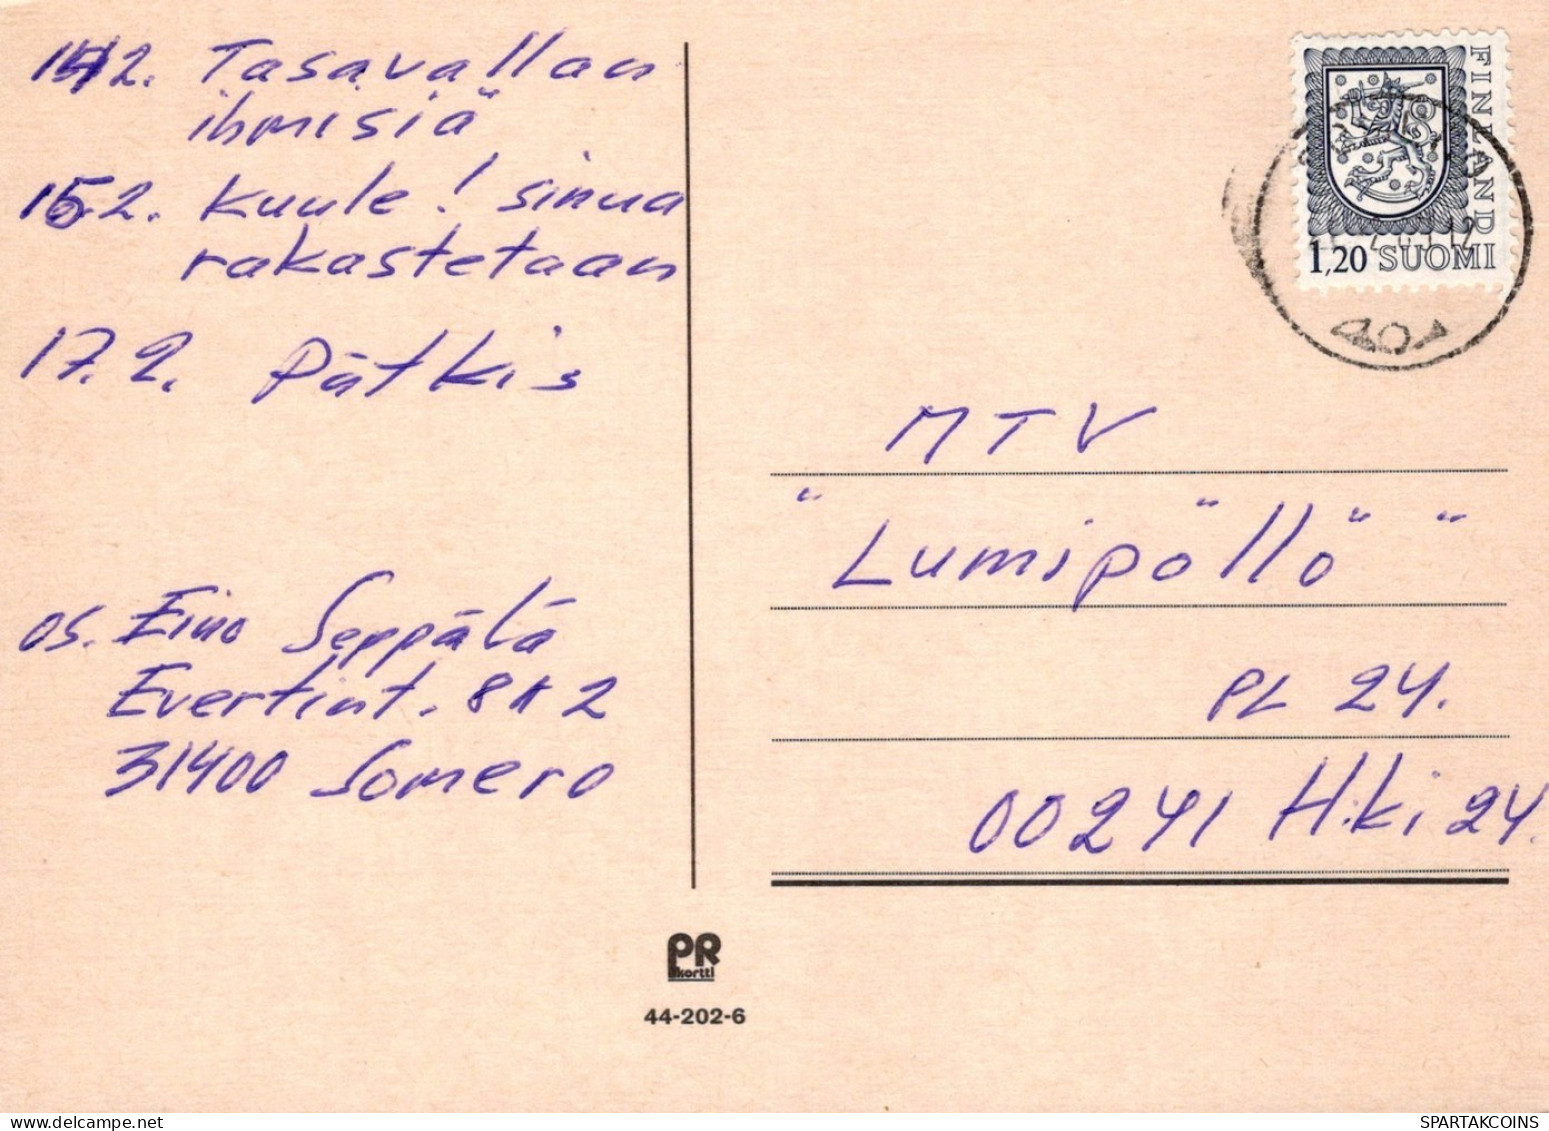 14/2. Tasavallan
ihmisiä"
15.2. Kuule! sinua
rakastetaan
17.2. Pätkis
os. Eino Seppälä
Evertint. 8 A 2
31400 Somero
FINLAND
1,20 SUOMI
MTV
"Lumipöllö"
PL 24.
00241 H:ki 24.
PR
kortti
44-202-6
SPARTAKCOINS